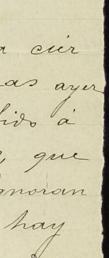 a cier
as ayer
lido á
, que
ignoran
hay